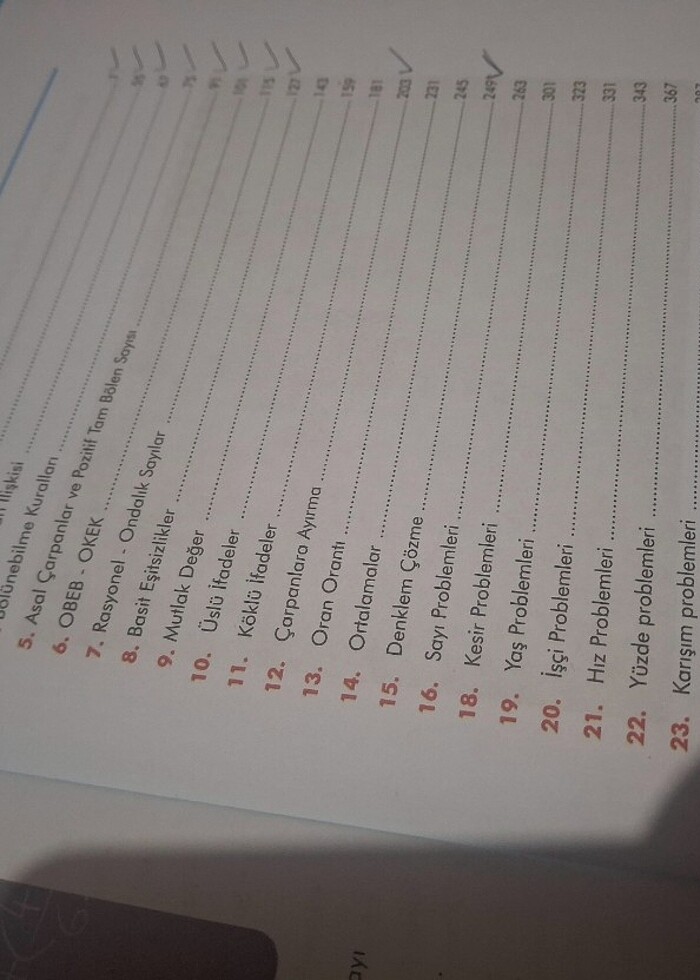 İlişkisi ..... 67
Bölünebilme Kuralları ..... 75
5. Asal Çarpanlar ve Pozitif Tam Bölen Sayısı ..... 91
6. OBEB - OKEK ..... 101
7. Rasyonel - Ondalık Sayılar ..... 115
8. Basit Eşitsizlikler ..... 127
9. Mutlak Değer ..... 143
10. Üslü İfadeler ..... 159
11. Köklü İfadeler ..... 181
12. Çarpanlara Ayırma ..... 203
13. Oran Orantı ..... 231
14. Ortalamalar ..... 245
15. Denklem Çözme ..... 249
16. Sayı Problemleri ..... 263
18. Kesir Problemleri ..... 301
19. Yaş Problemleri ..... 323
20. İşçi Problemleri ..... 331
21. Hız Problemleri ..... 343
22. Yüzde problemleri ..... 367
23. Karışım problemleri